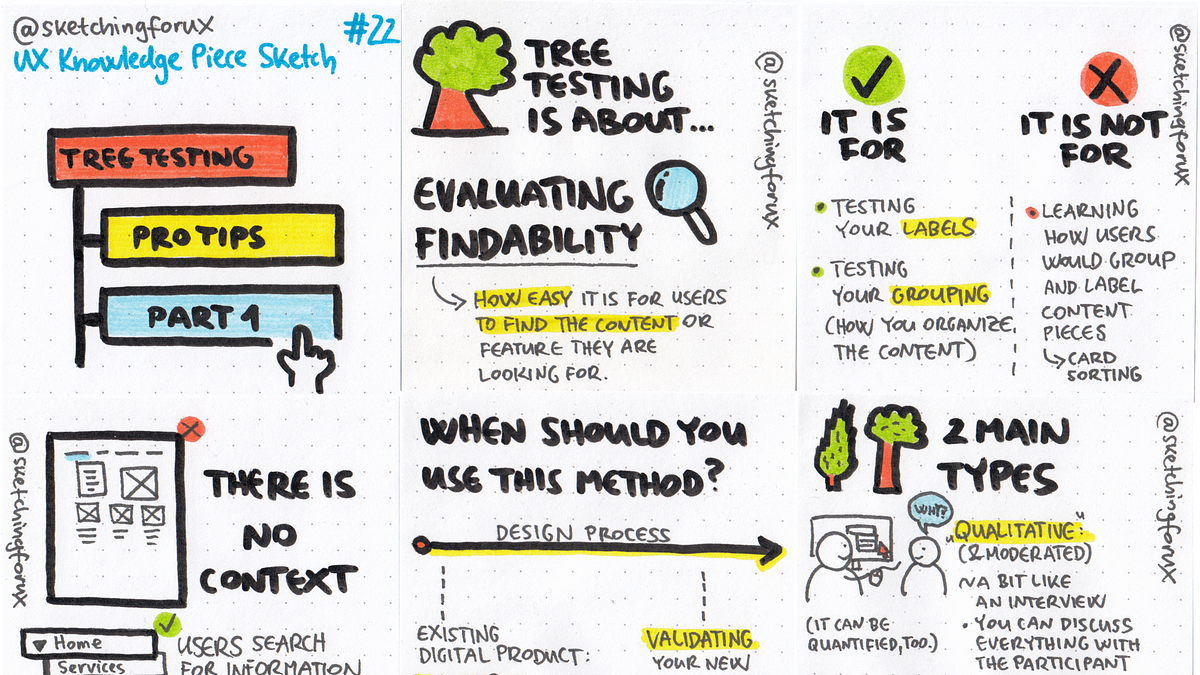 @sketchingforux
#22
UX Knowledge Piece Sketch
TREE TESTING
PRO TIPS
PART 1
TREE
TESTING
IS ABOUT...
EVALUATING
FINDABILITY
HOW EASY IT IS FOR USERS
TO FIND THE CONTENT OR
FEATURE THEY ARE
LOOKING FOR.
@sketchingforux
IT IS
FOR
• TESTING
YOUR LABELS
• TESTING
YOUR GROUPING
(HOW YOU ORGANIZE
THE CONTENT)
IT IS NOT
FOR
• LEARNING
HOW USERS
WOULD GROUP
AND LABEL
CONTENT
PIECES
CARD
SORTING
@sketchingforux
@sketchingforux
THERE IS
NO
CONTEXT
Home
Services
USERS SEARCH
FOR INFORMATION
WHEN SHOULD YOU
USE THIS METHOD?
DESIGN PROCESS
EXISTING
DIGITAL PRODUCT:
VALIDATING
YOUR NEW
2 MAIN
TYPES
WHY?
"QUALITATIVE":
(& MODERATED)
~A BIT LIKE
AN INTERVIEW
• YOU CAN DISCUSS
EVERYTHING WITH
THE PARTICIPANT
(IT CAN BE
QUANTIFIED, TOO.)
@sketchingforux